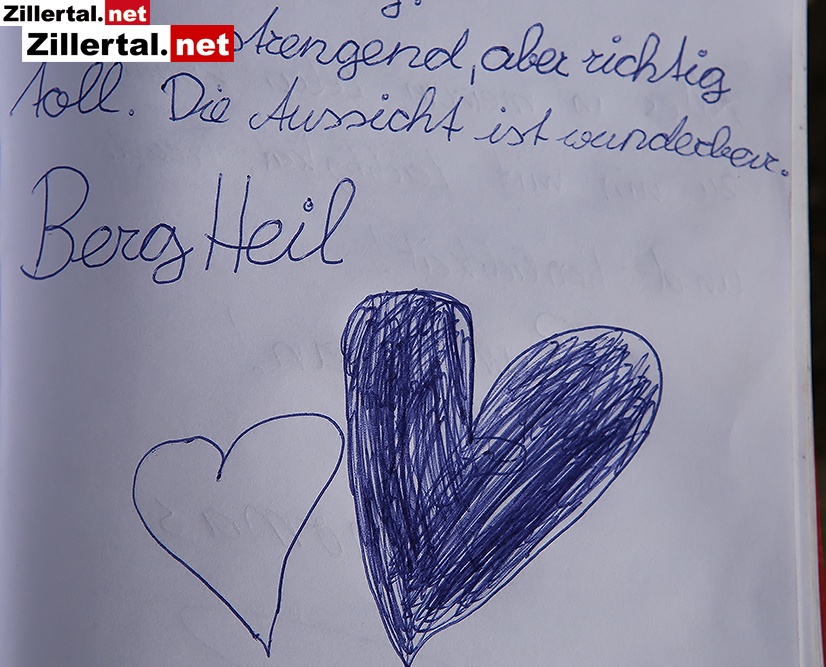 Zillertal.net
Zillertal.net
strengend, aber richtig
toll. Die Aussicht ist wunderbar.
Berg Heil